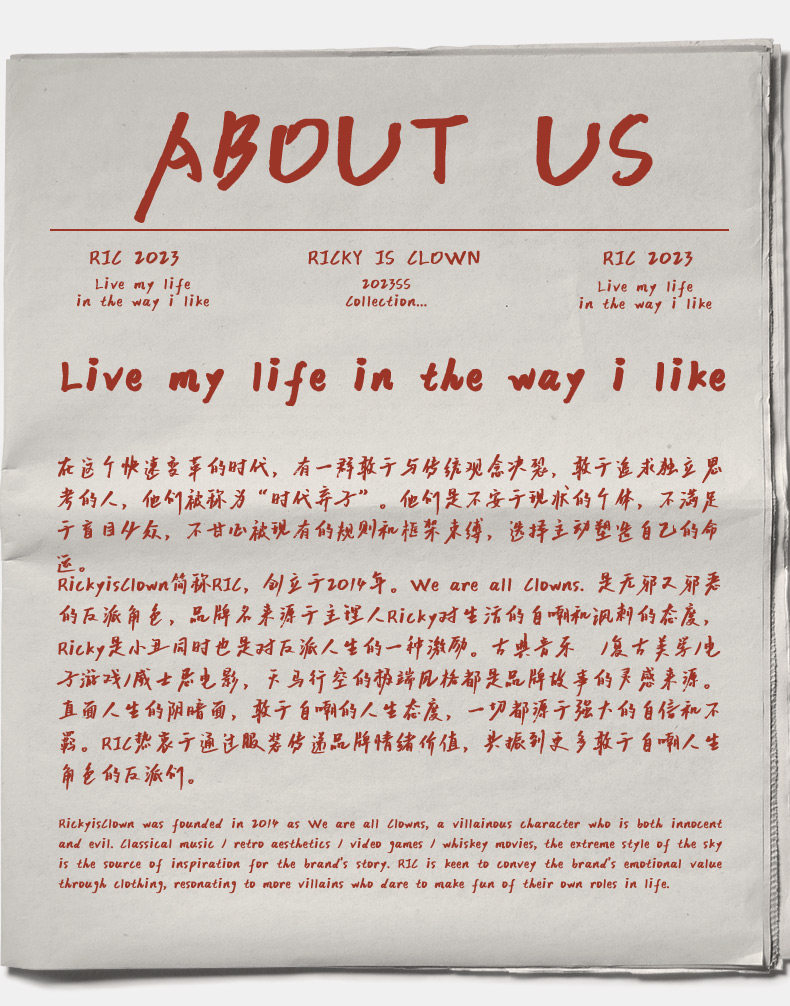 ABOUT US
RIC 2023
Live my life
in the way i like
RICKY IS CLOWN
2023SS
Collection...
RIC 2023
Live my life
in the way i like
Live my life in the way i like
在这个快速变革的时代，有一群敢于与传统观念决裂，敢于追求独立思
考的人，他们被称为“时代弃子”。他们是不安于现状的个体，不满足
于盲目从众，不甘心被现有的规则和框架束缚，选择主动塑造自己的命
运。
RickyisClown简称RIC，创立于2014年。We are all Clowns. 是无邪又邪恶
的反派角色，品牌名来源于主理人Ricky对生活的自嘲和讽刺的态度，
Ricky是小丑同时也是对反派人生的一种激励。古典音乐 /复古美学/电
子游戏/威士忌电影，天马行空的极端风格都是品牌故事的灵感来源。
直面人生的阴暗面，敢于自嘲的人生态度，一切都源于强大的自信和不
羁。RIC热衷于通过服装传递品牌情绪价值，共振到更多敢于自嘲人生
角色的反派们。
RickyisClown was founded in 2014 as We are all Clowns, a villainous character who is both innocent
and evil. Classical music / retro aesthetics / video games / whiskey movies, the extreme style of the sky
is the source of inspiration for the brand's story. RIC is keen to convey the brand's emotional value
through clothing, resonating to more villains who dare to make fun of their own roles in life.